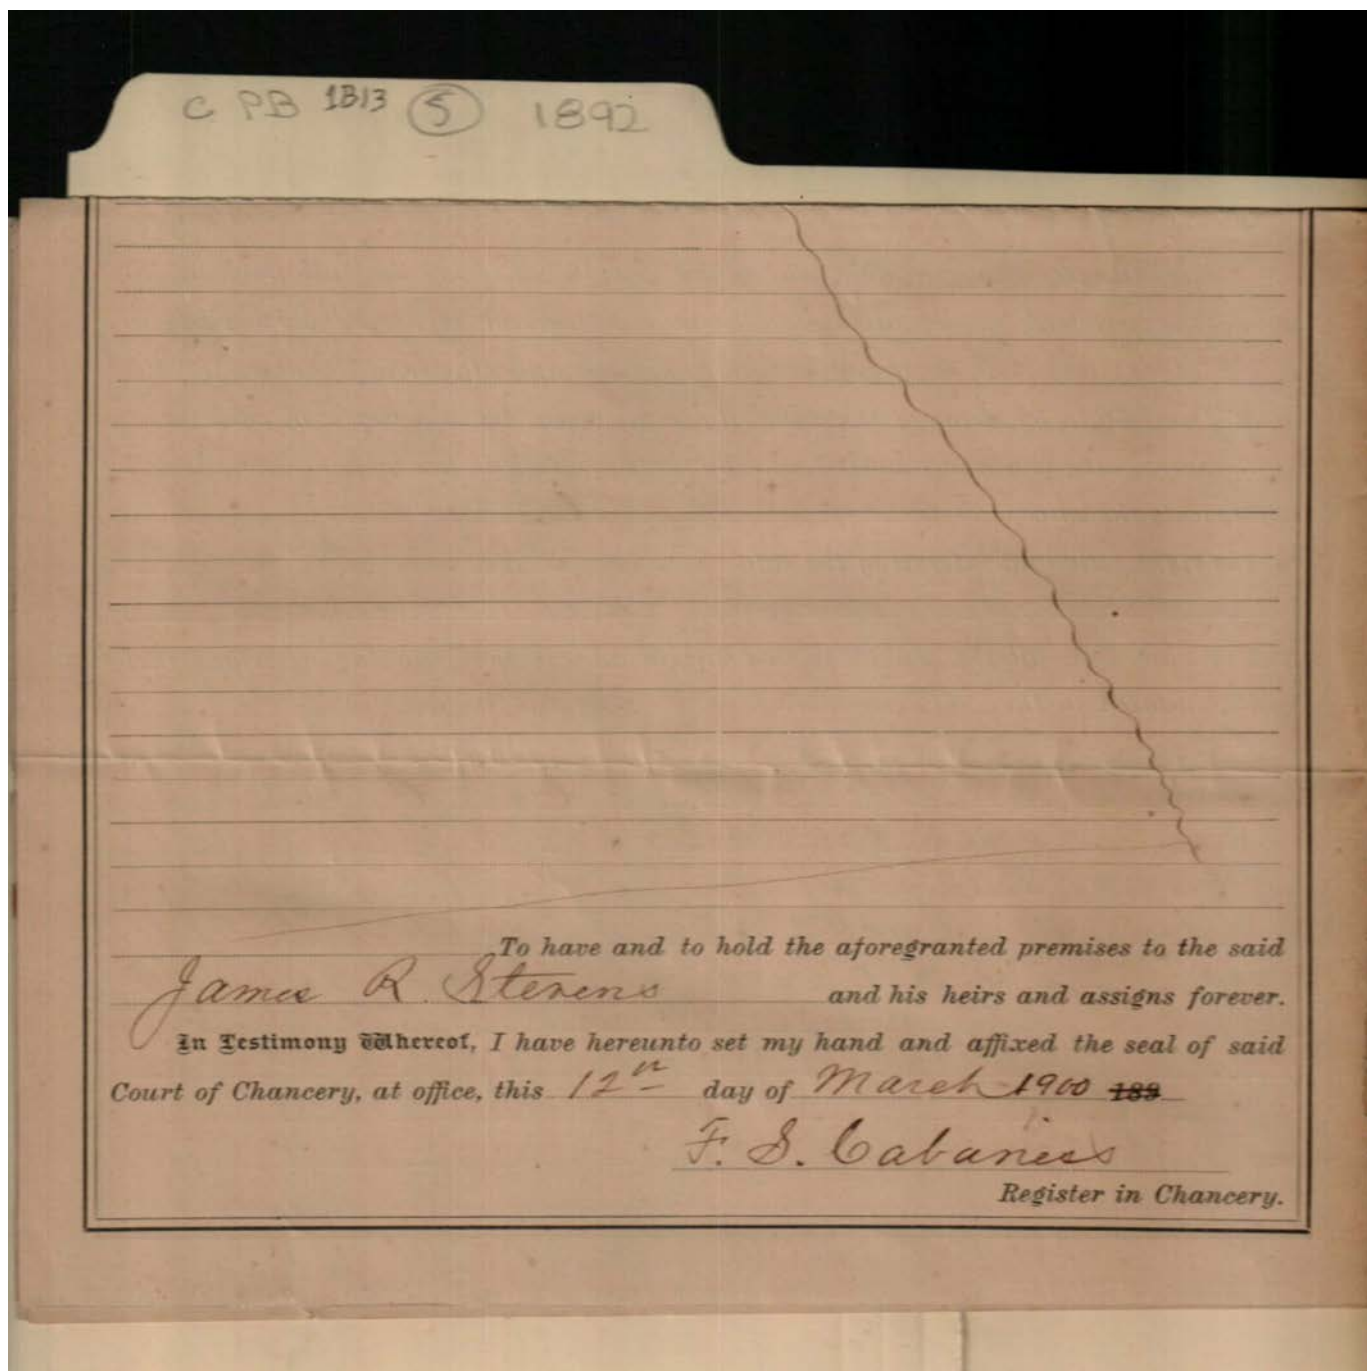 C PB 1B13 5 1892
To have and to hold the aforegranted premises to the said
James R. Stevens and his heirs and assigns forever.
In Testimony Whereof, I have hereunto set my hand and affixed the seal of said
Court of Chancery, at office, this 12th day of March 1900 189
F. S. Cabaniss
Register in Chancery.